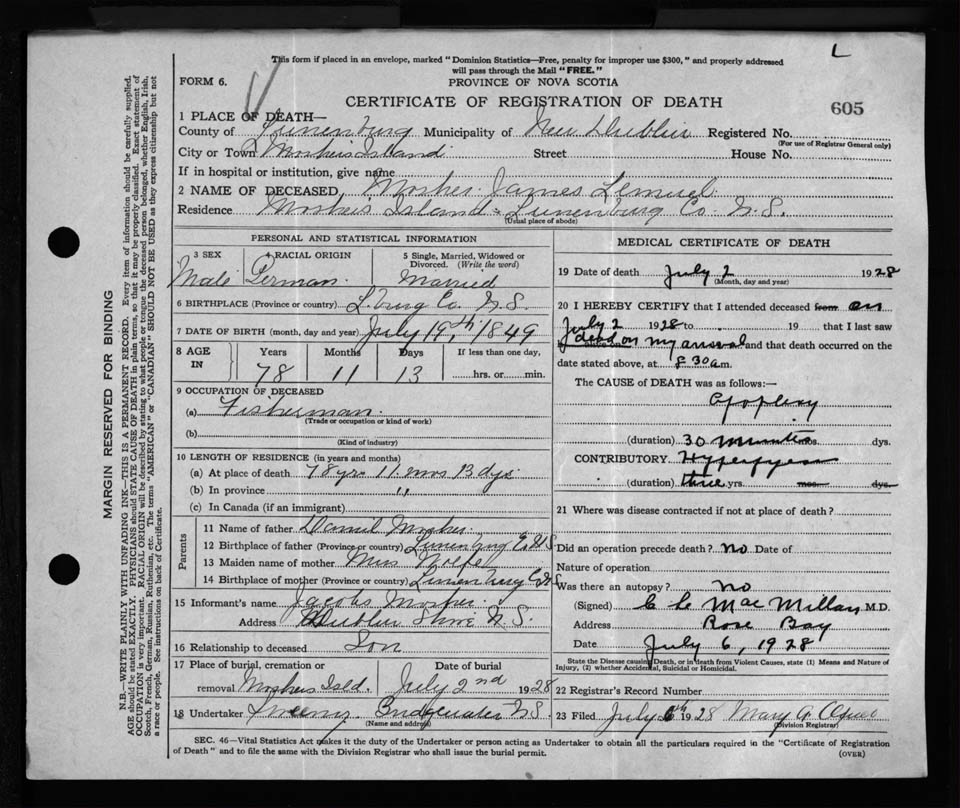 L
This form if placed in an envelope, marked "Dominion Statistics—Free, penalty for improper use $300," and properly addressed
will pass through the Mail "FREE."
FORM 6.
PROVINCE OF NOVA SCOTIA
CERTIFICATE OF REGISTRATION OF DEATH
605
1 PLACE OF DEATH—
County of Lunenburg Municipality of New Dublin Registered No.
(For use of Registrar General only)
City or Town Moshers Island Street House No.
If in hospital or institution, give name
2 NAME OF DECEASED Mosher James Lemuel
Residence Moshers Island Lunenburg Co N.S.
(Usual place of abode)
PERSONAL AND STATISTICAL INFORMATION
3 SEX Male
4 RACIAL ORIGIN German
5 Single, Married, Widowed or Divorced. (Write the word) Married
6 BIRTHPLACE (Province or country) L.burg Co N.S.
7 DATE OF BIRTH (month, day and year) July 19th, 1849
8 AGE IN Years Months Days If less than one day,
78 11 13 hrs. or min.
9 OCCUPATION OF DECEASED
(a) Fisherman
(Trade or occupation or kind of work)
(b)
(Kind of industry)
10 LENGTH OF RESIDENCE (in years and months)
(a) At place of death 78 yrs 11 mos 13 dys
(b) In province "
(c) In Canada (if an immigrant)
Parents
11 Name of father Daniel Mosher
12 Birthplace of father (Province or country) Lunenburg Co N.S
13 Maiden name of mother Miss Wolfe
14 Birthplace of mother (Province or country) Lunenburg Co N.S
15 Informant's name Jacobs Mosher
Address Dublin Shore N.S.
16 Relationship to deceased Son
17 Place of burial, cremation or Date of burial
removal Moshers Isld. July 2nd 1928
18 Undertaker Sweeny Bridgewater N.S
(Name and address)
MEDICAL CERTIFICATE OF DEATH
19 Date of death July 2 1928
(Month, day and year)
20 I HEREBY CERTIFY that I attended deceased from on
July 2 1928 to 19 that I last saw
dead on my arrival and that death occurred on the
date stated above, at 8 30 a m.
The CAUSE of DEATH was as follows:—
Apoplexy
(duration) 30 minutes dys.
CONTRIBUTORY
(duration) three yrs. mos. dys.
21 Where was disease contracted if not at place of death?
Did an operation precede death? no Date of
Nature of operation
Was there an autopsy? no
(Signed) C C MacMillan M.D.
Address Rose Bay
Date July 6, 1928
State the Disease causing Death, or in death from Violent Causes, state (1) Means and Nature of
Injury, (2) whether Accidental, Suicidal or Homicidal.
22 Registrar's Record Number
23 Filed July 6th 1928 Mary A
(Division Registrar)
SEC. 46—Vital Statistics Act makes it the duty of the Undertaker or person acting as Undertaker to obtain all the particulars required in the "Certificate of Registration
of Death" and to file the same with the Division Registrar who shall issue the burial permit.
(OVER)
MARGIN RESERVED FOR BINDING
N.B.—WRITE PLAINLY WITH UNFADING INK—THIS IS A PERMANENT RECORD. Every item of information should be carefully supplied.
AGE should be stated EXACTLY. PHYSICIANS should STATE CAUSE OF DEATH in plain terms, so that it may be properly classified. Exact statement of
OCCUPATION is very important. RACIAL ORIGIN will be described by stating to what people or tongue the deceased person belonged, whether English, Irish,
Scotch, French, German, Russian, Ruthenian, etc. The terms "AMERICAN" or "CANADIAN" SHOULD NOT BE USED as they express citizenship but not
a race or people. See instructions on back of Certificate.